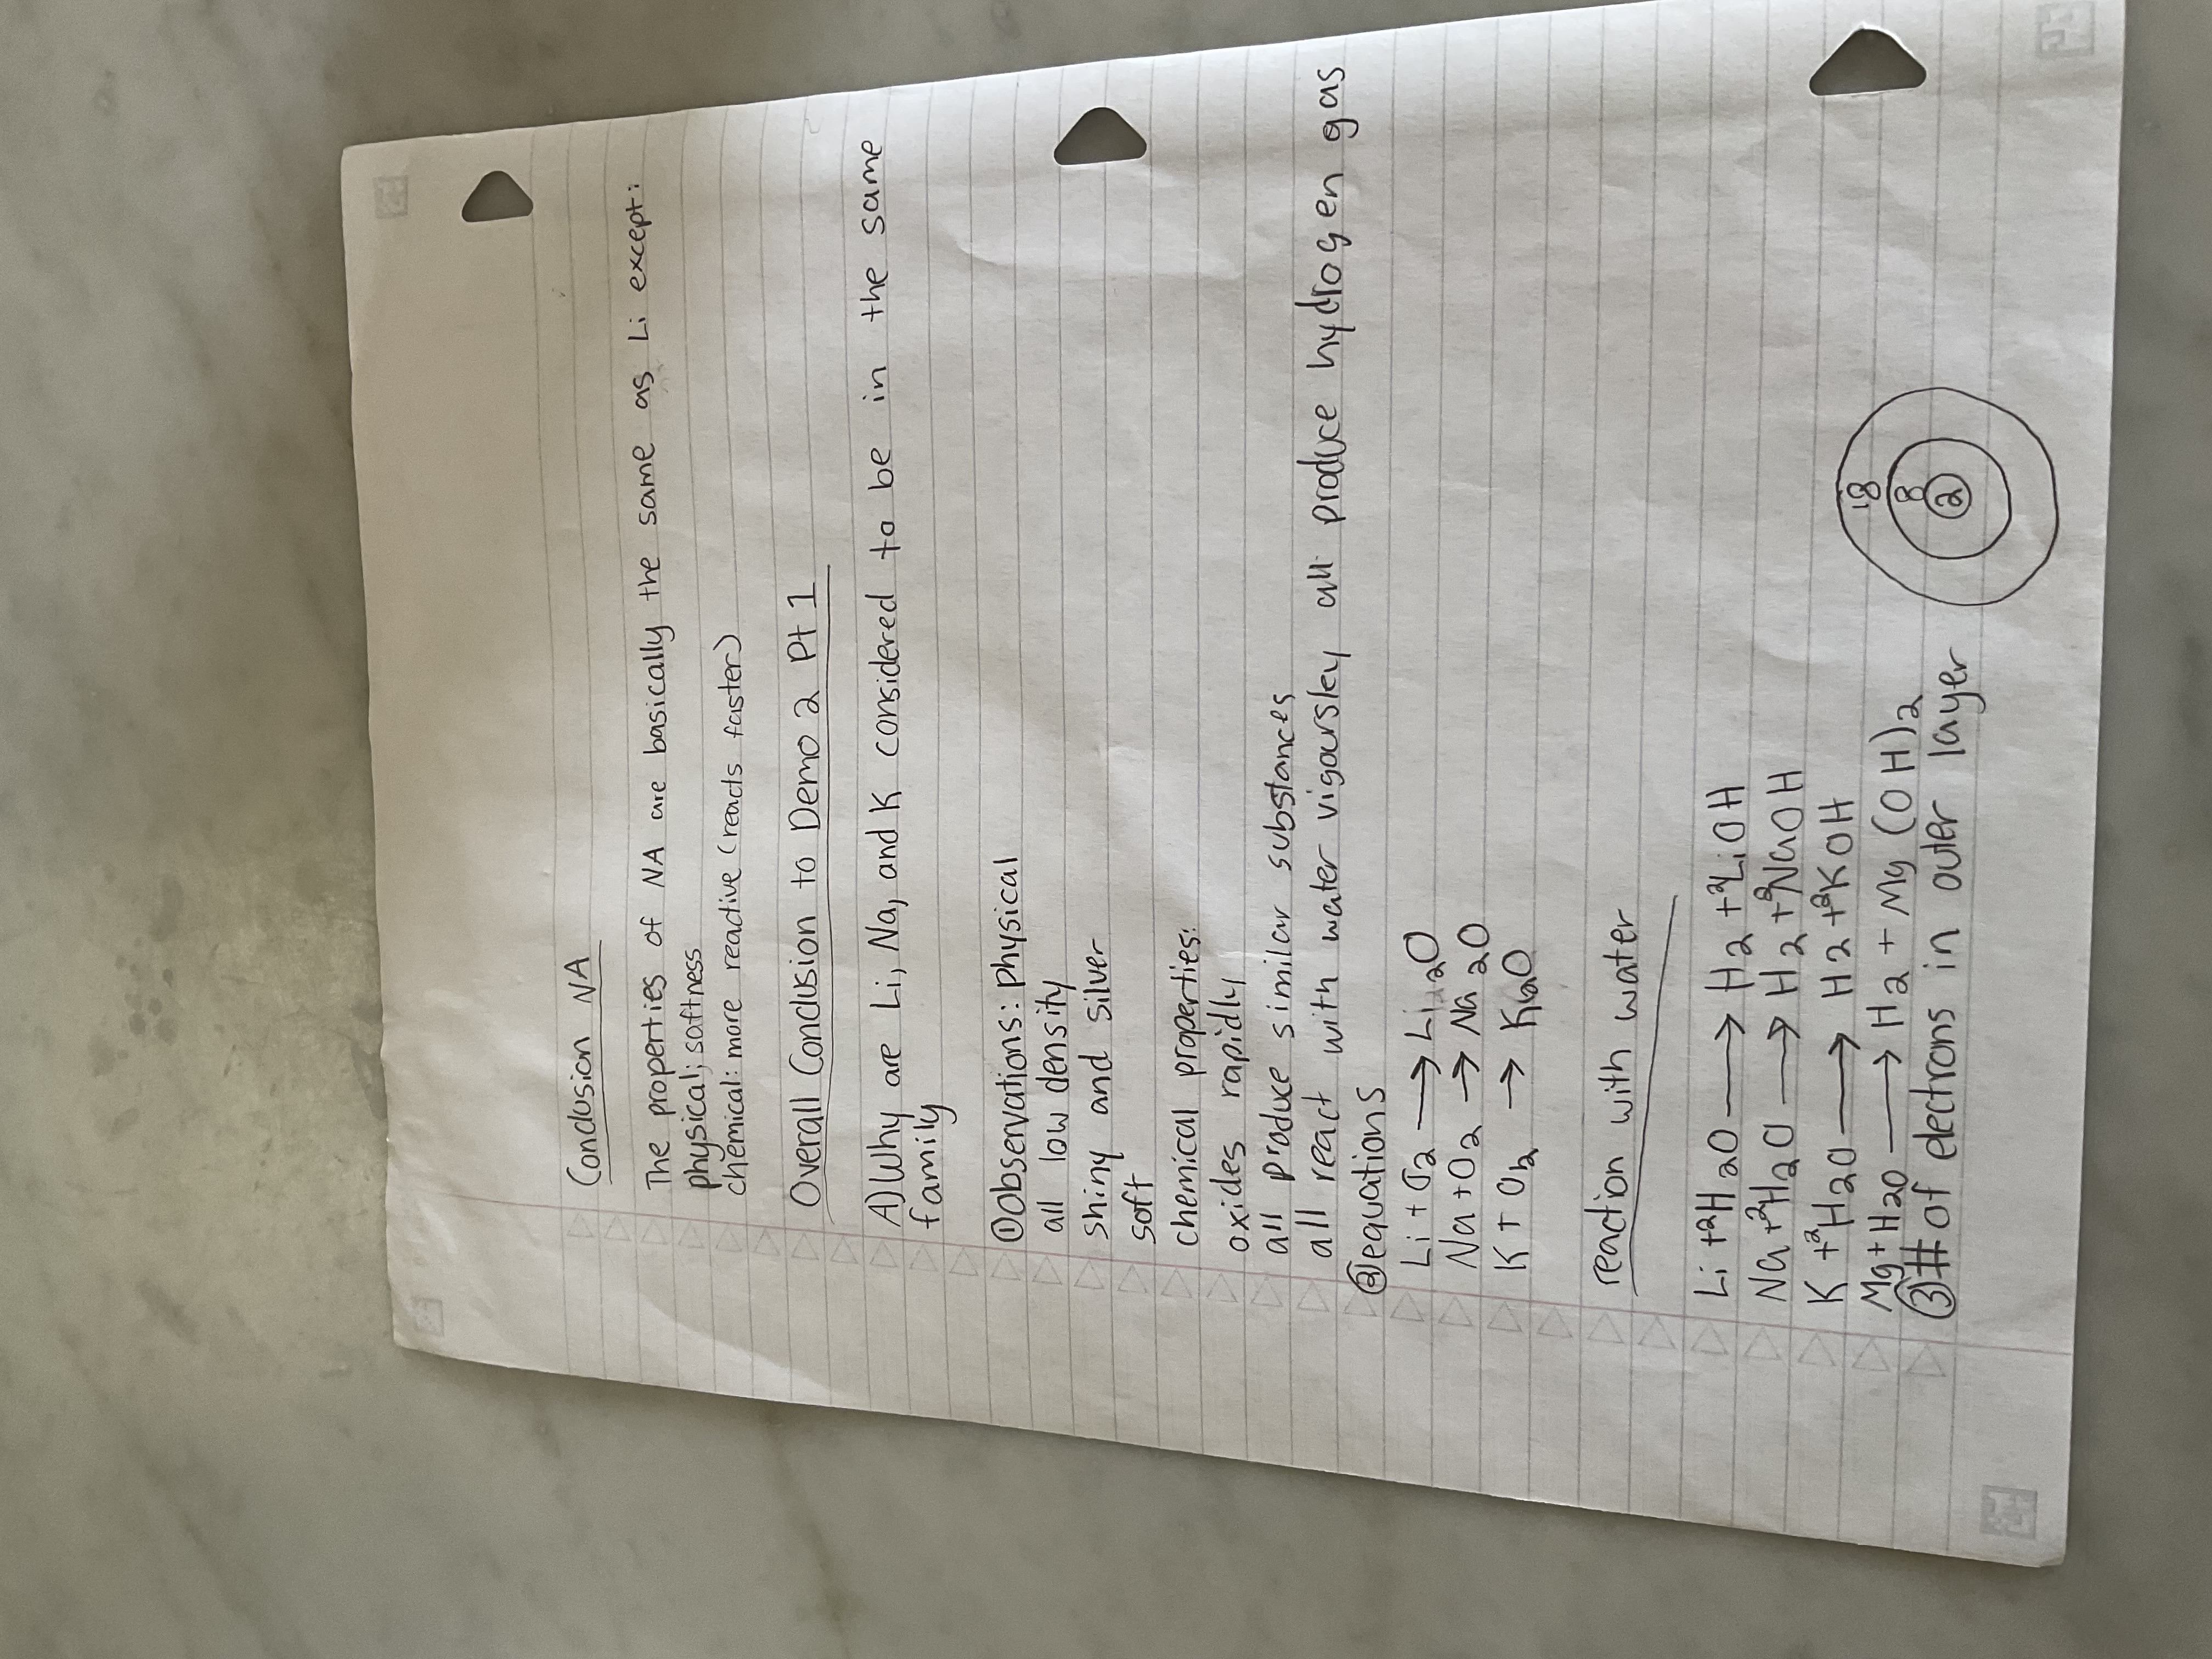 Conclusion NA
The properties of NA are basically the same as Li except:
physical; softness
chemical: more reactive (reacts faster)
Overall Conclusion to Demo 2 Pt 1
A) Why are Li, Na, and K considered to be in the same
family
① Observations: physical
all low density
shiny and silver
soft
chemical properties:
oxides rapidly
all produce similar substances
all react with water vigoursley all produce hydrogen gas
② equations
Li + O2 → Li2O
Na + O2 → Na2O
K + O2 → K2O
reaction with water
Li + 2H2O → H2 + 2LiOH
Na + 2H2O → H2 + 2NaOH
K + 2H2O → H2 + 2KOH
Mg + H2O → H2 + Mg(OH)2
③ # of electrons in outer layer
18
8
2